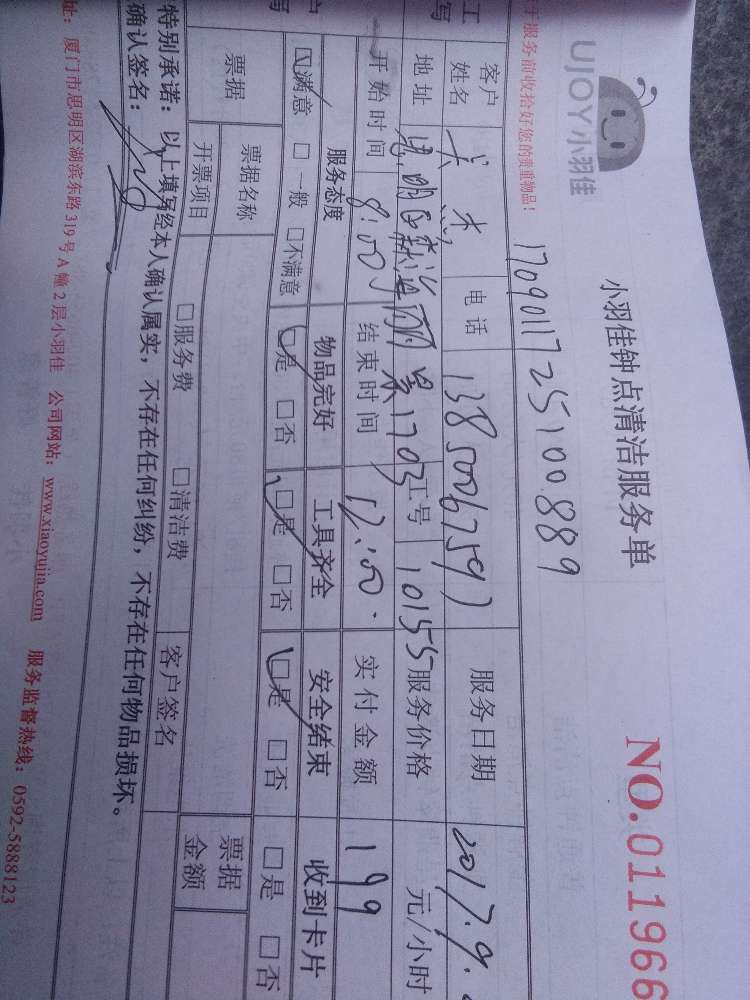 UJOY小羽佳
小羽佳钟点清洁服务单
NO.011966
于服务前收拾好您的贵重物品!
17090117251008 89
客户姓名 吴 电话 13850067597 服务日期 2017.9.
地址 思明区 丽景1703 工号 10155 服务价格 元/小时
开始时间 8:00 结束时间 12:00. 实付金额 199
服务态度 物品完好 工具齐全 安全结束 收到卡片
□满意 □一般 □不满意 □是 □否 □是 □否 □是 □否 □是 □否
票据 票据名称 □服务费 □清洁费 客户签名 票据金额
开票项目
特别承诺:以上填写经本人确认属实,不存在任何纠纷,不存在任何物品损坏。
确认签名:
址:厦门市思明区湖滨东路319号A幢2层小羽佳 公司网站:www.xiaoyujia.com 服务监督热线:0592-5888123